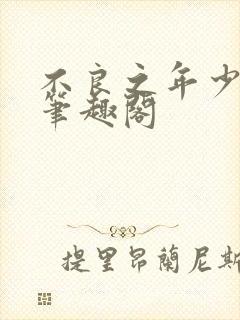 不良之年少
筆趣閣
提里昂蘭尼斯